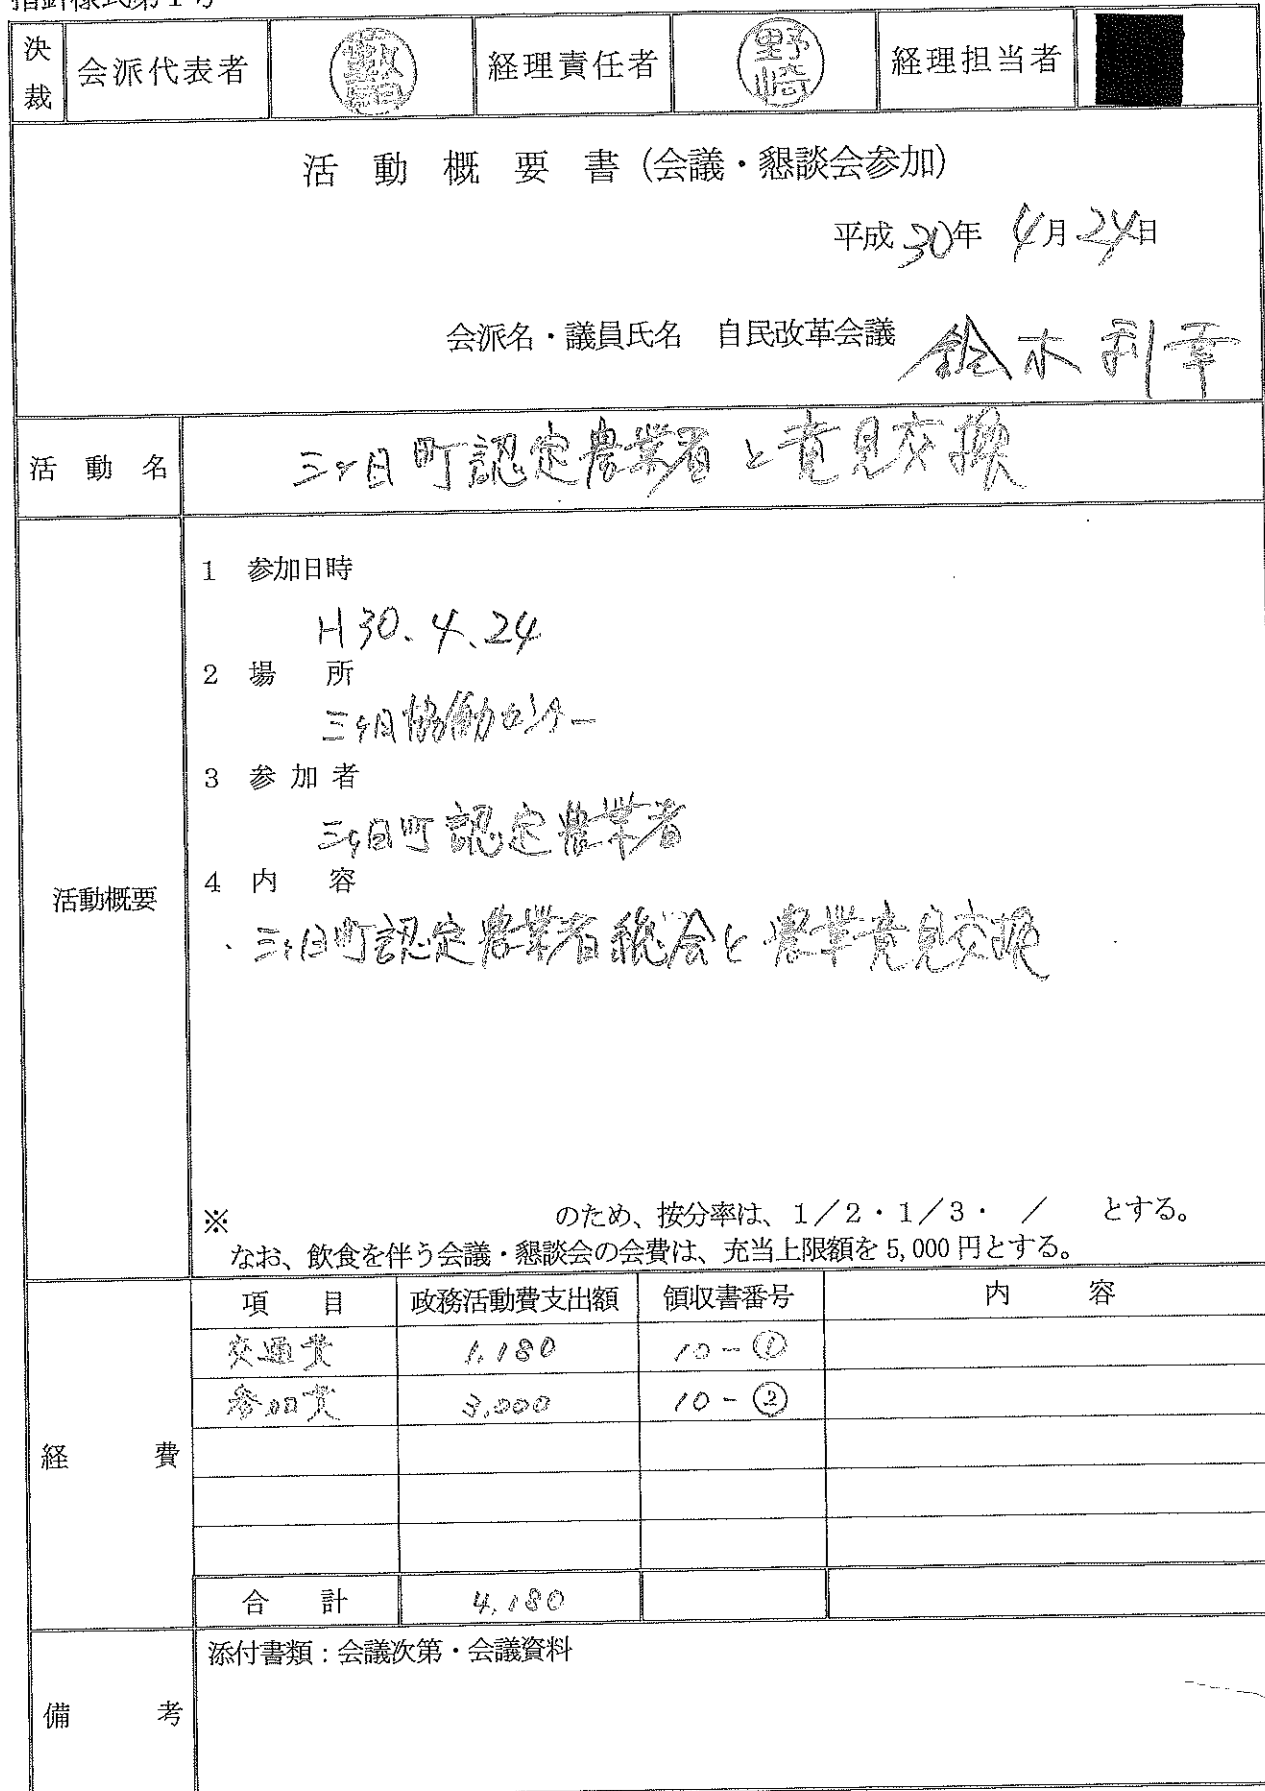 指針様式第1号
決裁 会派代表者 経理責任者 野崎 経理担当者
活動概要書(会議・懇談会参加)
平成30年 4月24日
会派名・議員氏名 自民改革会議 鈴木利幸
活動名 三ヶ日町認定農業者と意見交換
活動概要
1 参加日時
H30.4.24
2 場所
三ヶ日協働センター
3 参加者
三ヶ日町認定農業者
4 内容
・三ヶ日町認定農業者総会と農業意見交換
※ のため、按分率は、1/2・1/3・ / とする。
なお、飲食を伴う会議・懇談会の会費は、充当上限額を5,000円とする。
経費
項目 政務活動費支出額 領収書番号 内容
交通費 1,180 10-①
参加費 3,000 10-②
合計 4,180
備考
添付書類:会議次第・会議資料